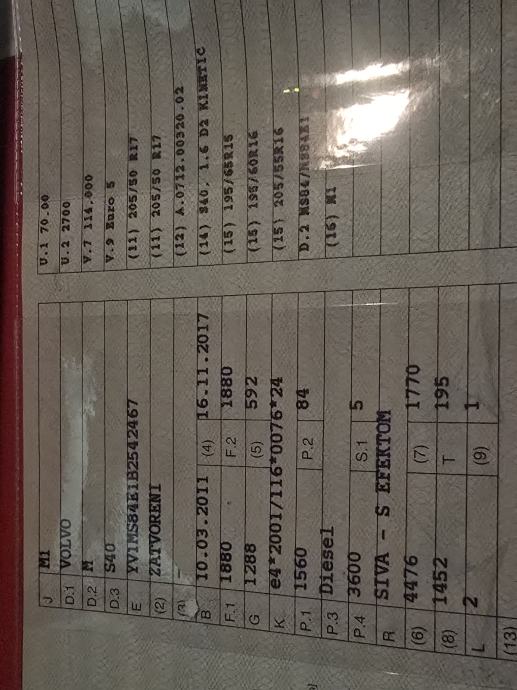 J M1
D.1 VOLVO
D.2 M
D.3 S40
E YV1MS84E1B2542467
(2) ZATVORENI
(3) -
B 10.03.2011 (4) 16.11.2017
F.1 1880 F.2 1880
G 1288 (5) 592
K e4*2001/116*0076*24
P.1 1560 P.2 84
P.3 Diesel
P.4 3600 S.1 5
R SIVA - S EFEKTOM
(6) 4476 (7) 1770
(8) 1452 T 195
L 2 (9) 1
(13)
U.1 70.00
U.2 2700
V.7 114.000
V.9 Euro 5
(11) 205/50 R17
(11) 205/50 R17
(12) A.0712.00320.02
(14) S40, 1.6 D2 KINETIC
(15) 195/65R15
(15) 195/60R16
(15) 205/55R16
D.2
(16) M1